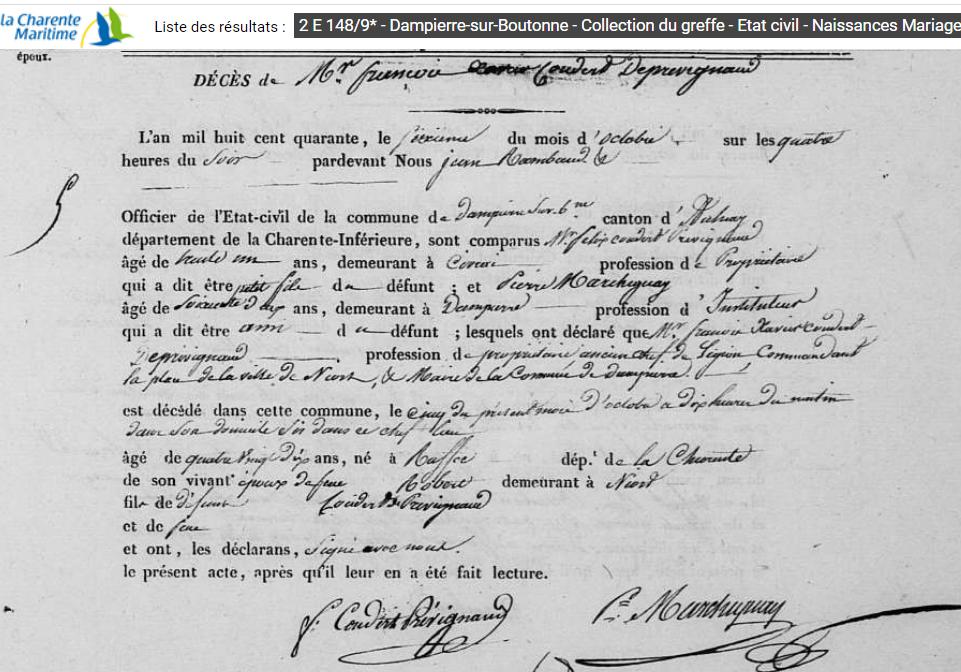 la Charente
Maritime
Liste des résultats : 2 E 148/9* - Dampierre-sur-Boutonne - Collection du greffe - Etat civil - Naissances Mariage
époux.
DÉCÈS de Mr. françois xavier Coudert Deprévignaud
L'an mil huit cent quarante, le sixieme du mois d'octobre sur les quatre
heures du Soir pardevant Nous jean Rambaud
Officier de l'Etat-civil de la commune de Dampierre Sur bne canton d'Aulnay
département de la Charente-Inférieure, sont comparus Mr. félix coudert Prévignaud
âgé de trente un ans, demeurant à profession de Propriétaire
qui a dit être petit fils du défunt ; et Pierre Marcheguay
âgé de Soixante dix ans, demeurant à Dampierre profession d'Instituteur
qui a dit être ami du défunt ; lesquels ont déclaré que Mr. françois Xavier Coudert
Deprévignaud profession de propriétaire ancien chef de Légion Commandant
la place de la ville de Niort, & Maire de la Commune de dampierre.
est décédé dans cette commune, le Cinq du présent mois D'octobre a dix heures du matin
dans son domicile Sis dans ce chef lieu
âgé de quatre vingt dix ans, né à Ruffec dép.t de la Charente
de son vivant époux de feue Robert demeurant à Niort
fils de défunt Coudert de Prévignaud
et de feue
et ont, les déclarans, Signé avec nous.
le présent acte, après qu'il leur en a été fait lecture.
f. Coudert Prévignaud Pre Marcheguay